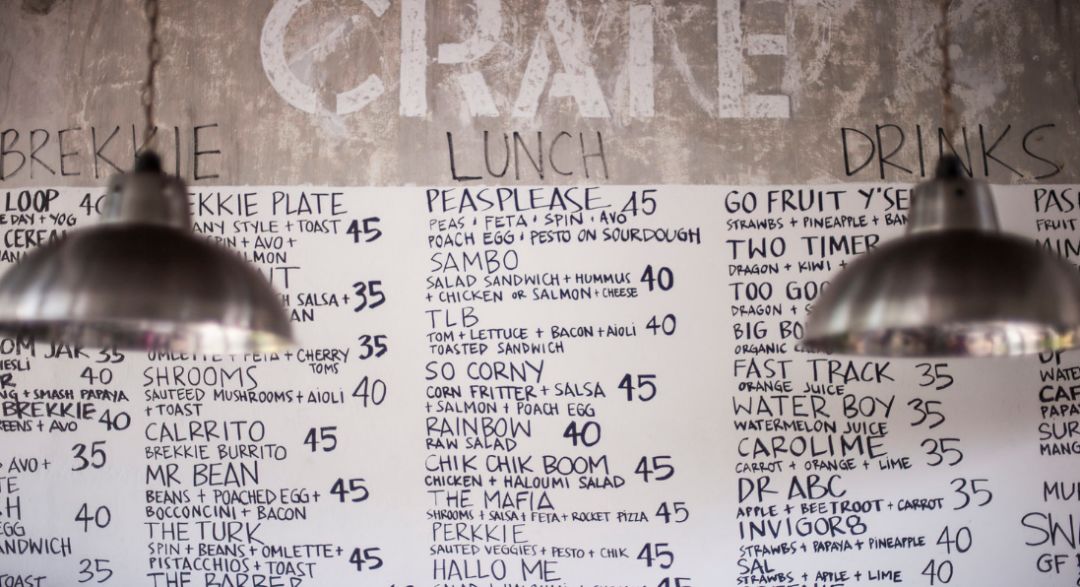 CRATE
BREKKIE
LOOP 40
+ YOG
OM JAR 35
40
+ SMASH PAPAYA
BREKKIE 40
+ AVO
AVO + 35
40
35
TOAST
PLATE
STYLE + TOAST 45
+ AVO +
SALSA + 35
OMLETTE + FETA + CHERRY 35
TOMS
SHROOMS
SAUTEED MUSHROOMS + AIOLI 40
+ TOAST
CALRRITO 45
BREKKIE BURRITO
MR BEAN
BEANS + POACHED EGG + 45
BOCCONCINI + BACON
THE TURK
SPIN + BEANS + OMLETTE + 45
PISTACCHIOS + TOAST
THE BARBER
LUNCH
PEASPLEASE 45
PEAS + FETA + SPIN + AVO
POACH EGG + PESTO ON SOURDOUGH
SAMBO
SALAD SANDWICH + HUMMUS 40
+ CHICKEN OR SALMON + CHEESE
TLB
TOM + LETTUCE + BACON + AIOLI 40
TOASTED SANDWICH
SO CORNY
CORN FRITTER + SALSA 45
+ SALMON + POACH EGG
RAINBOW 40
RAW SALAD
CHIK CHIK BOOM 45
CHICKEN + HALOUMI SALAD
THE MAFIA
SHROOMS + SALSA + FETA + ROCKET PIZZA 45
PERKKIE
SAUTED VEGGIES + PESTO + CHIK 45
HALLO ME
DRINKS
GO FRUIT Y'SE
STRAWBS + PINEAPPLE + BAN
TWO TIMER
DRAGON + KIWI +
TOO GOO
DRAGON +
BIG BO
ORGANIC
FAST TRACK 35
ORANGE JUICE
WATER BOY 35
WATERMELON JUICE
CAROLIME 35
CARROT + ORANGE + LIME
DR ABC 35
APPLE + BEETROOT + CARROT
INVIGOR8 40
STRAWBS + PAPAYA + PINEAPPLE
SAL 40
STRAWBS + APPLE + LIME
FRUIT
MANG
GF